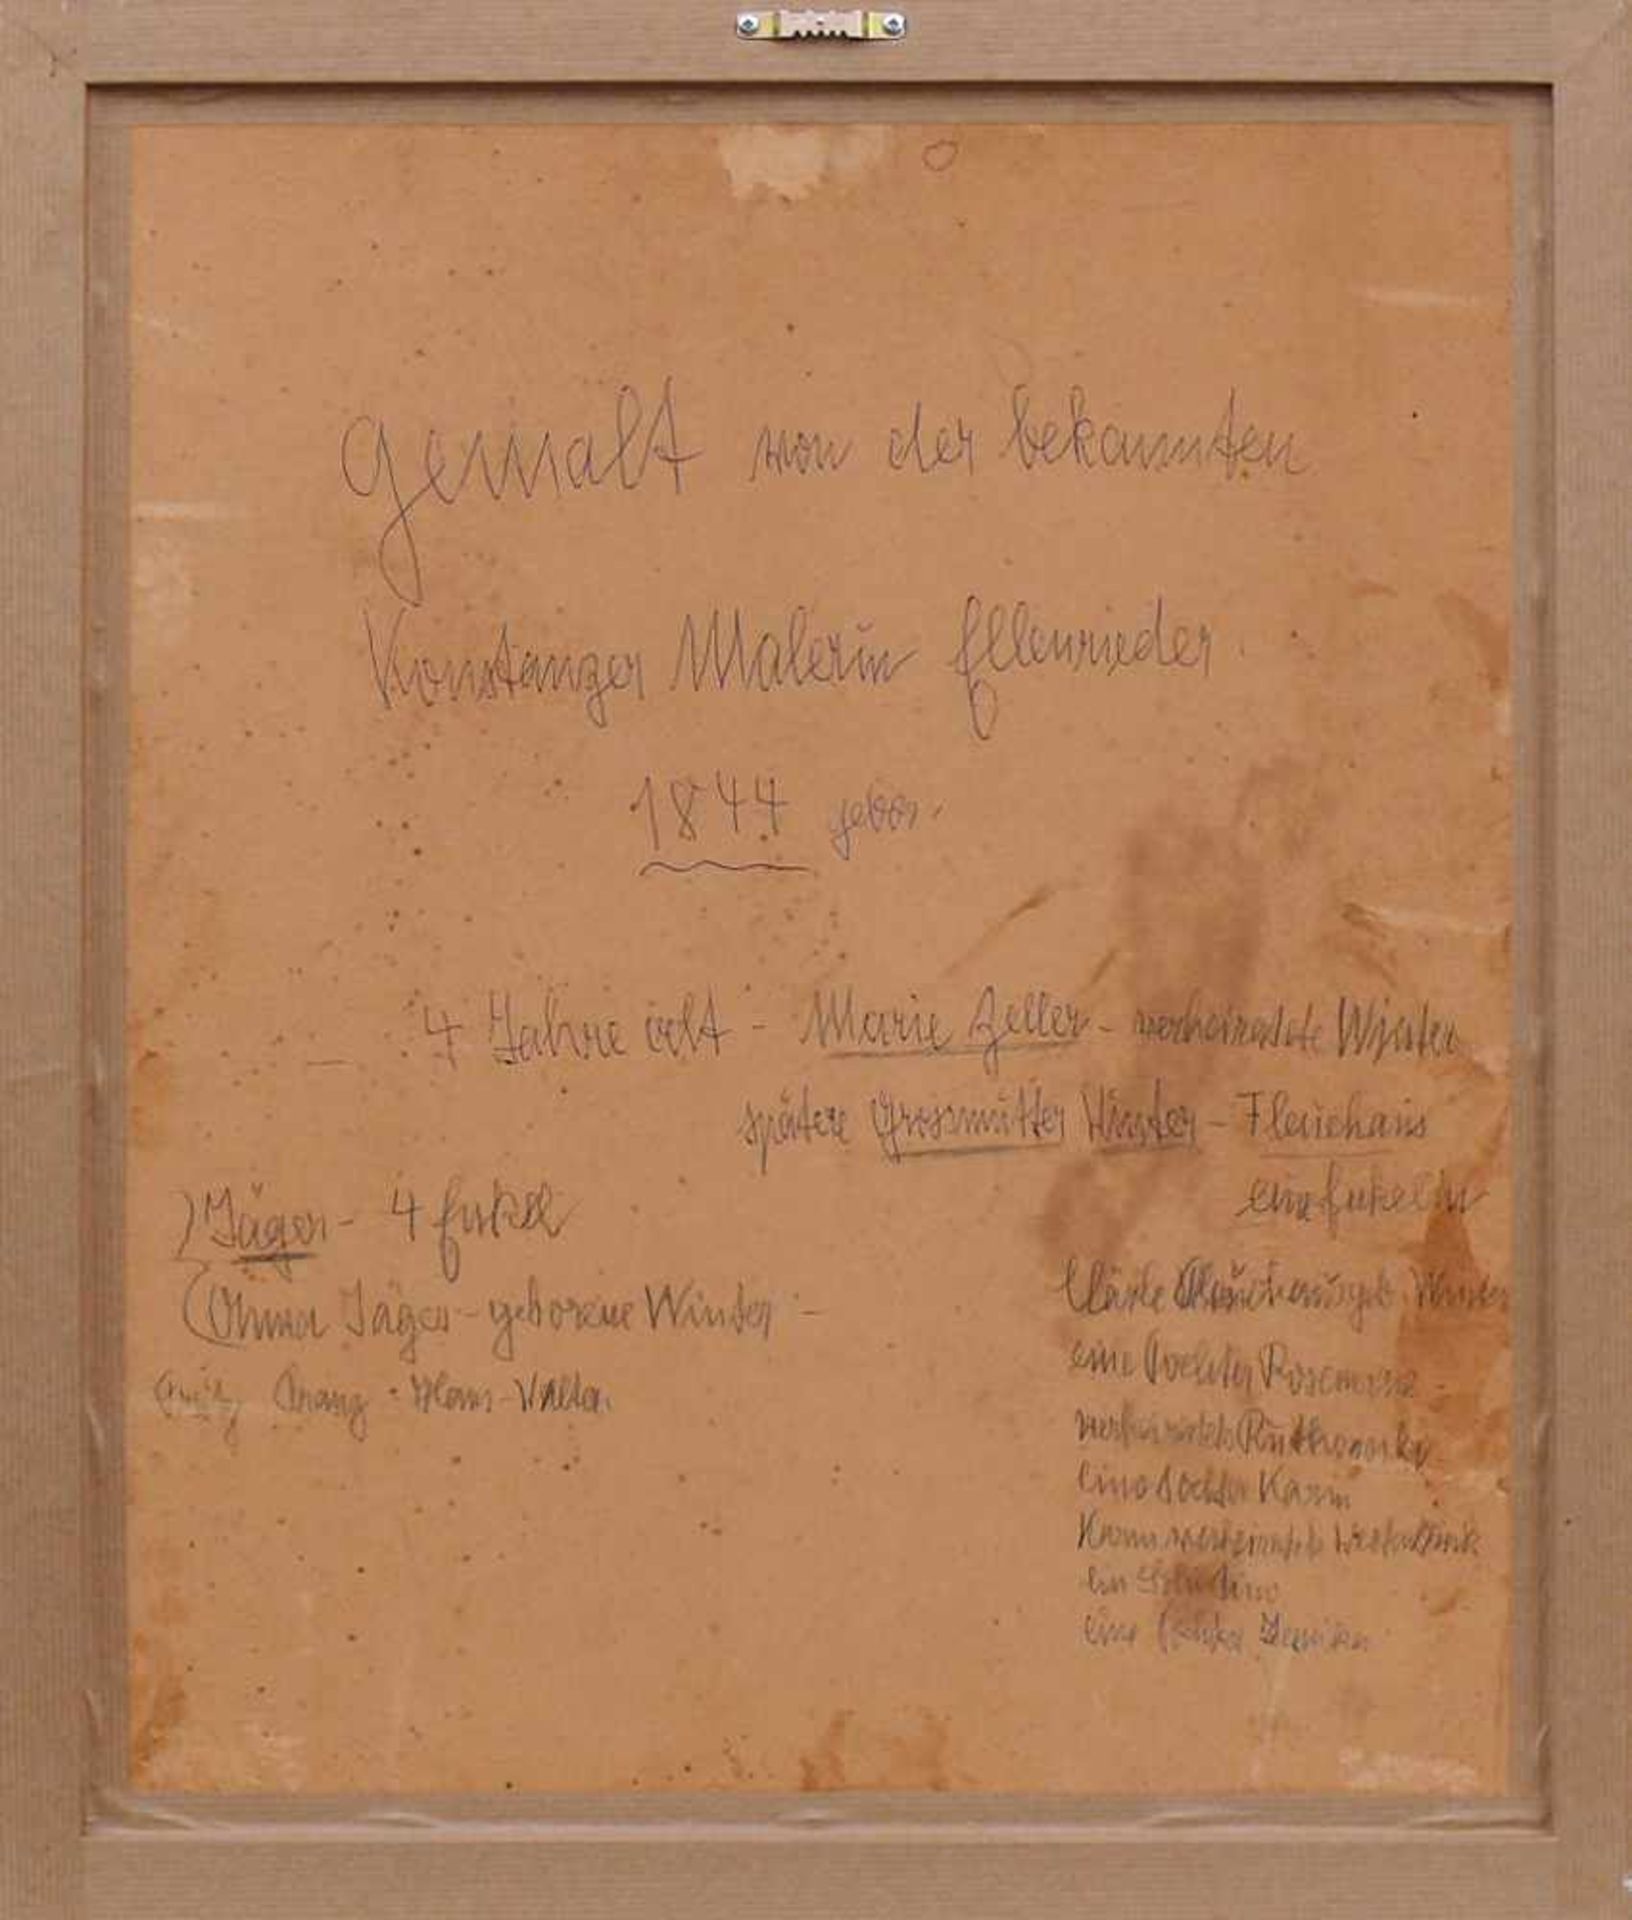 gemalt von der bekannten
Konstanzer Malerin Ellenrieder.
1844 gebor.
4 Jahre alt - Marie Zeller - verheiratete Winter
spätere Grossmutter Winter - Fleuchaus
eine Enkelin
Jäger - 4 Enkel
Ohma Jäger - geborene Winter -
Franz - Hans - Walter.
eine Tochter Rosemarie
verheiratet
eine Tochter Karin
Karin verheiratet
ein Sohn
eine Tochter